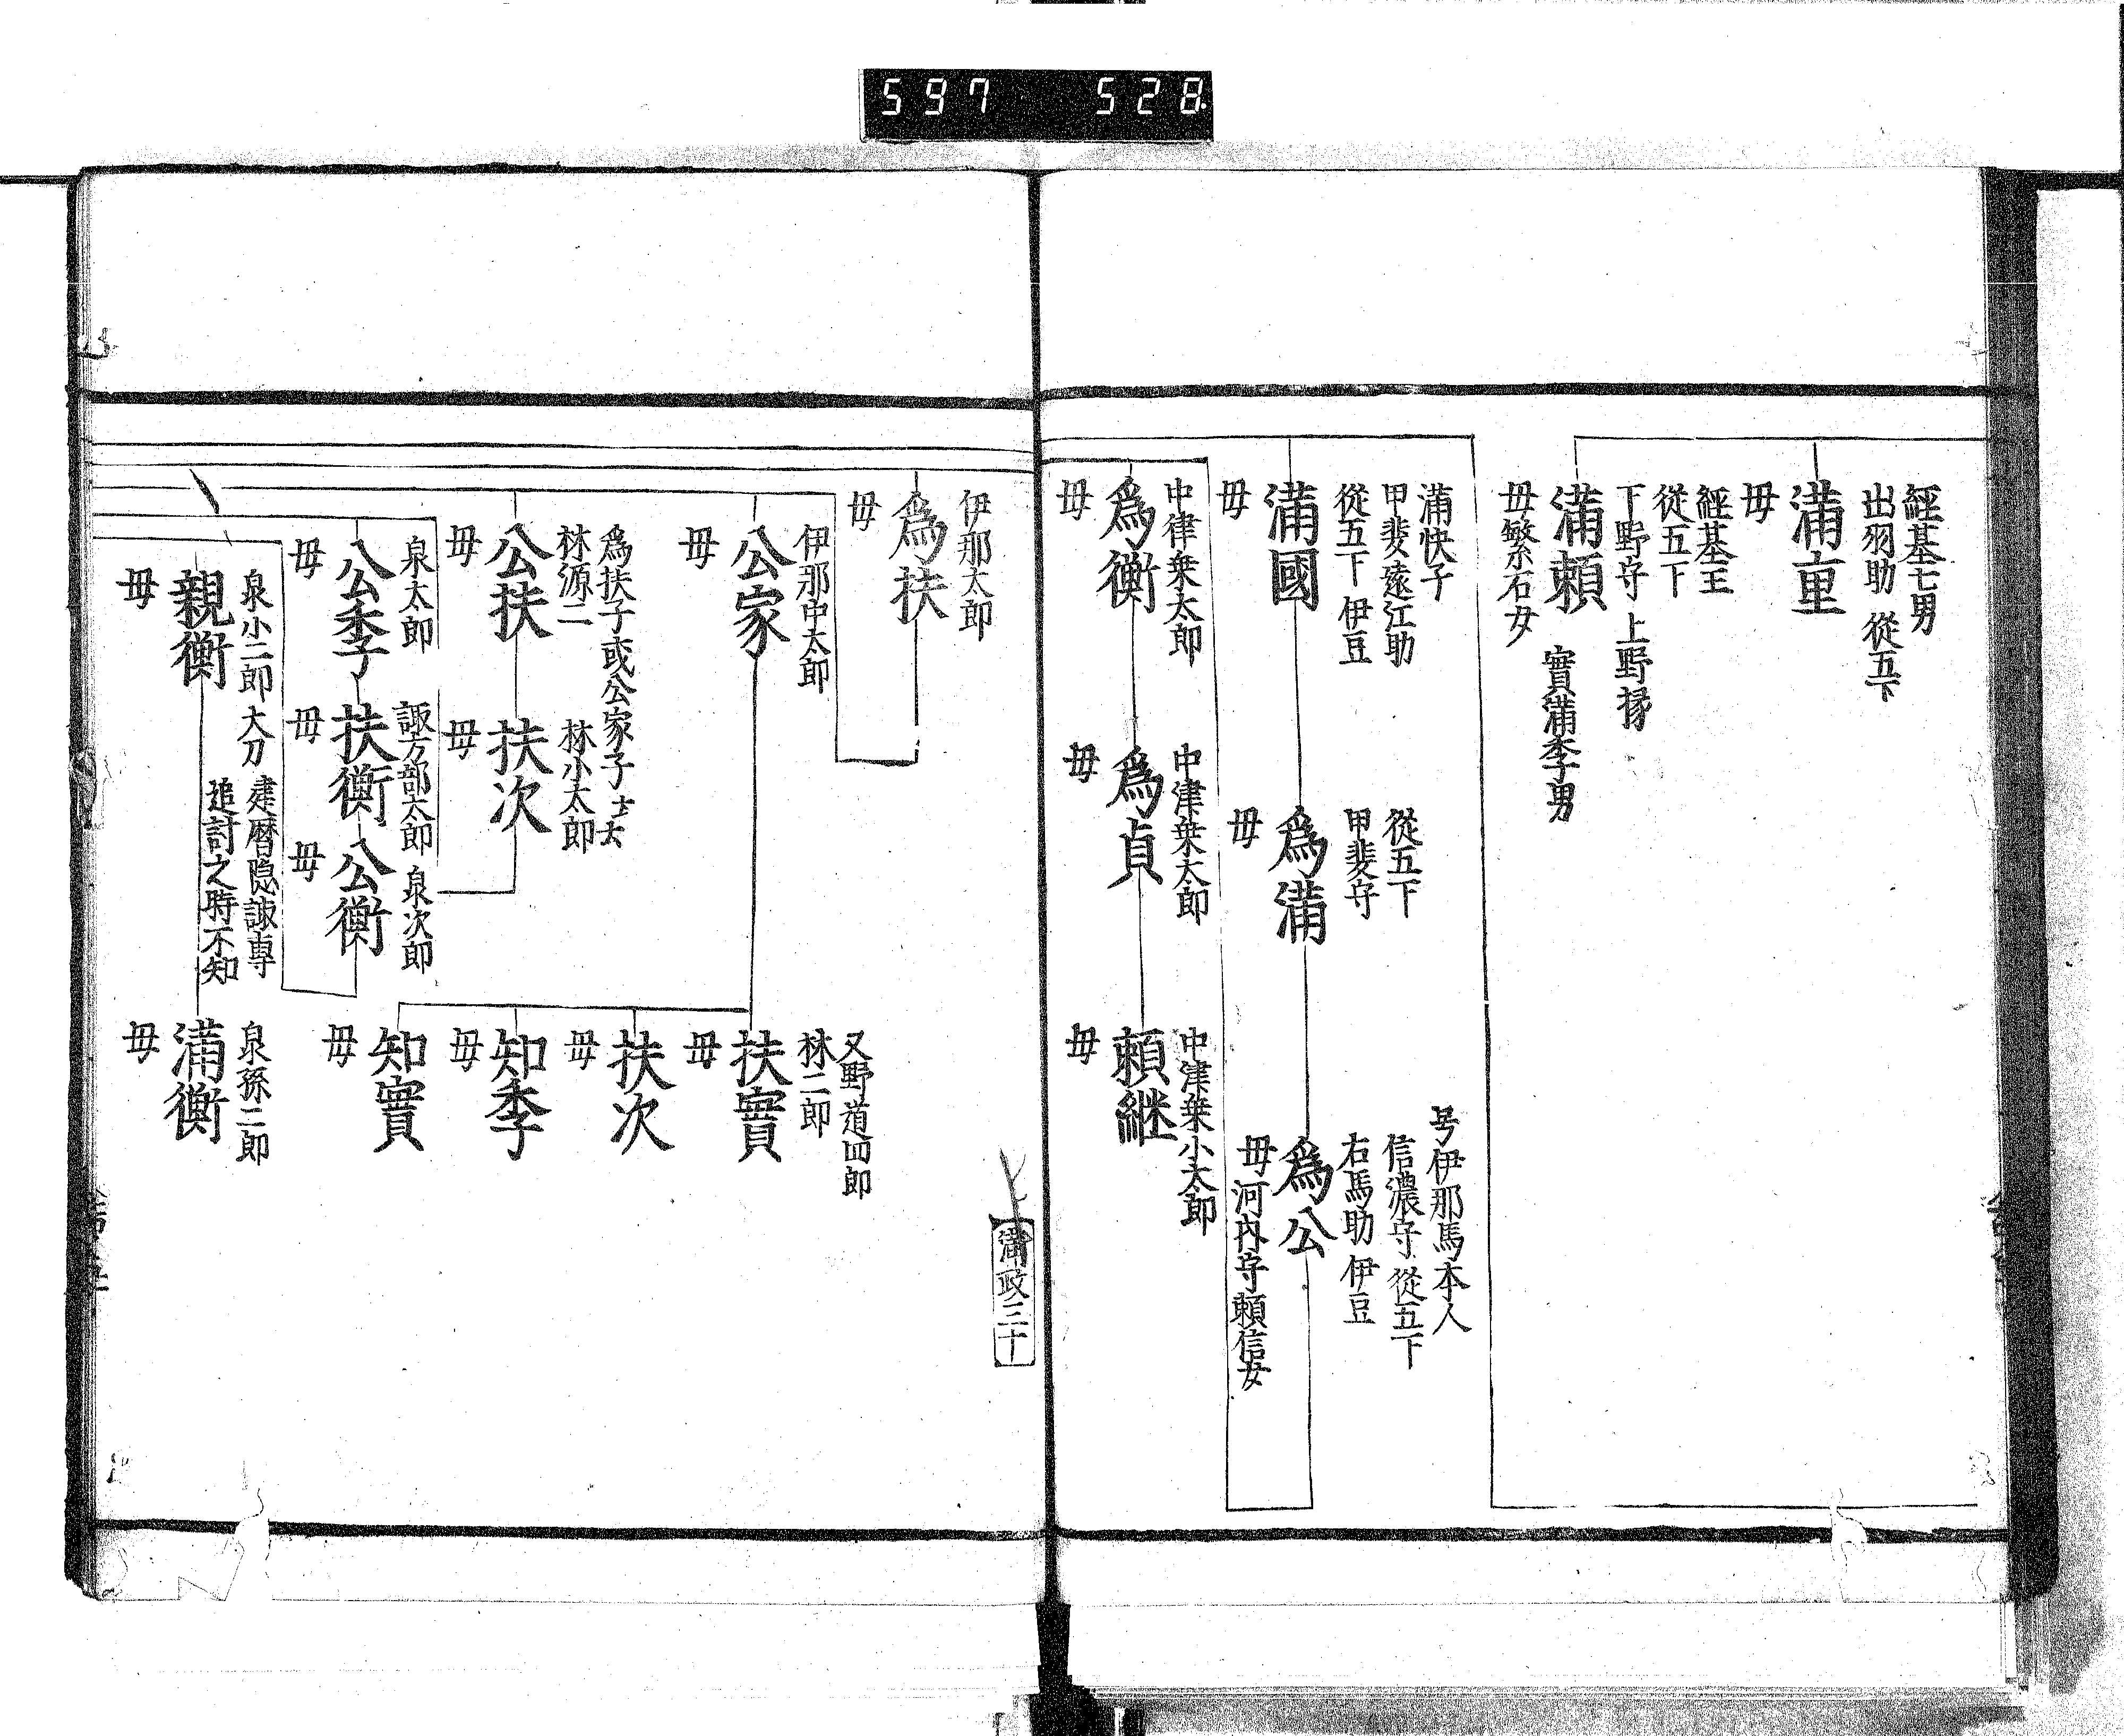 597 528
經基七男
出羽助 從五下
滿重
毋
經基王
從五下
下野守 上野掾
滿頼 實滿季男
毋繁石女
滿快子
甲斐遠江助
從五下 伊豆
滿國
毋
從五下
甲斐守
爲滿
毋
号伊那馬本人
信濃守 從五下
右馬助 伊豆
爲公
毋河内守頼信女
中津乗太郎
爲衡
毋
中津乗太郎
爲貞
毋
中津乗小太郎
頼継
毋
滿政三十
伊那太郎
爲扶
毋
伊那中太郎
公家
毋
又野道四郎
林二郎
扶實
毋
扶次
毋
知季
毋
知實
毋
爲扶子或公家子
林源二
公扶
毋
林小太郎
扶次
毋
泉太郎
公季
毋
諏方部太郎
扶衡
毋
泉次郎
公衡
毋
泉小二郎 大刀
建暦隠謀專
追討之時不知
親衡
毋
泉孫二郎
滿衡
毋